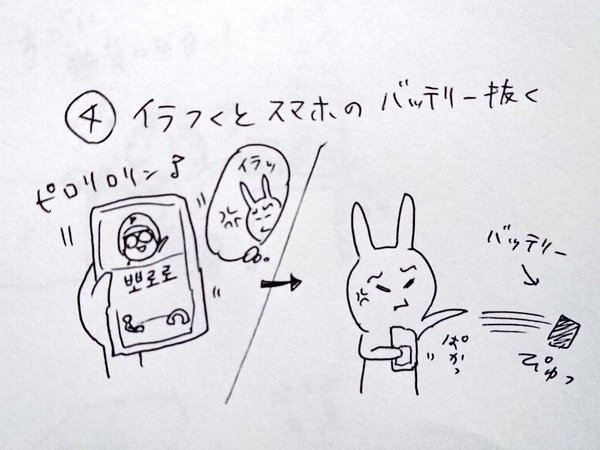 ④ イラつくとスマホのバッテリー抜く
ピロリロリン♪
イラッ
뽀로로
バッテリー
ぱかっ
ぴゅっ